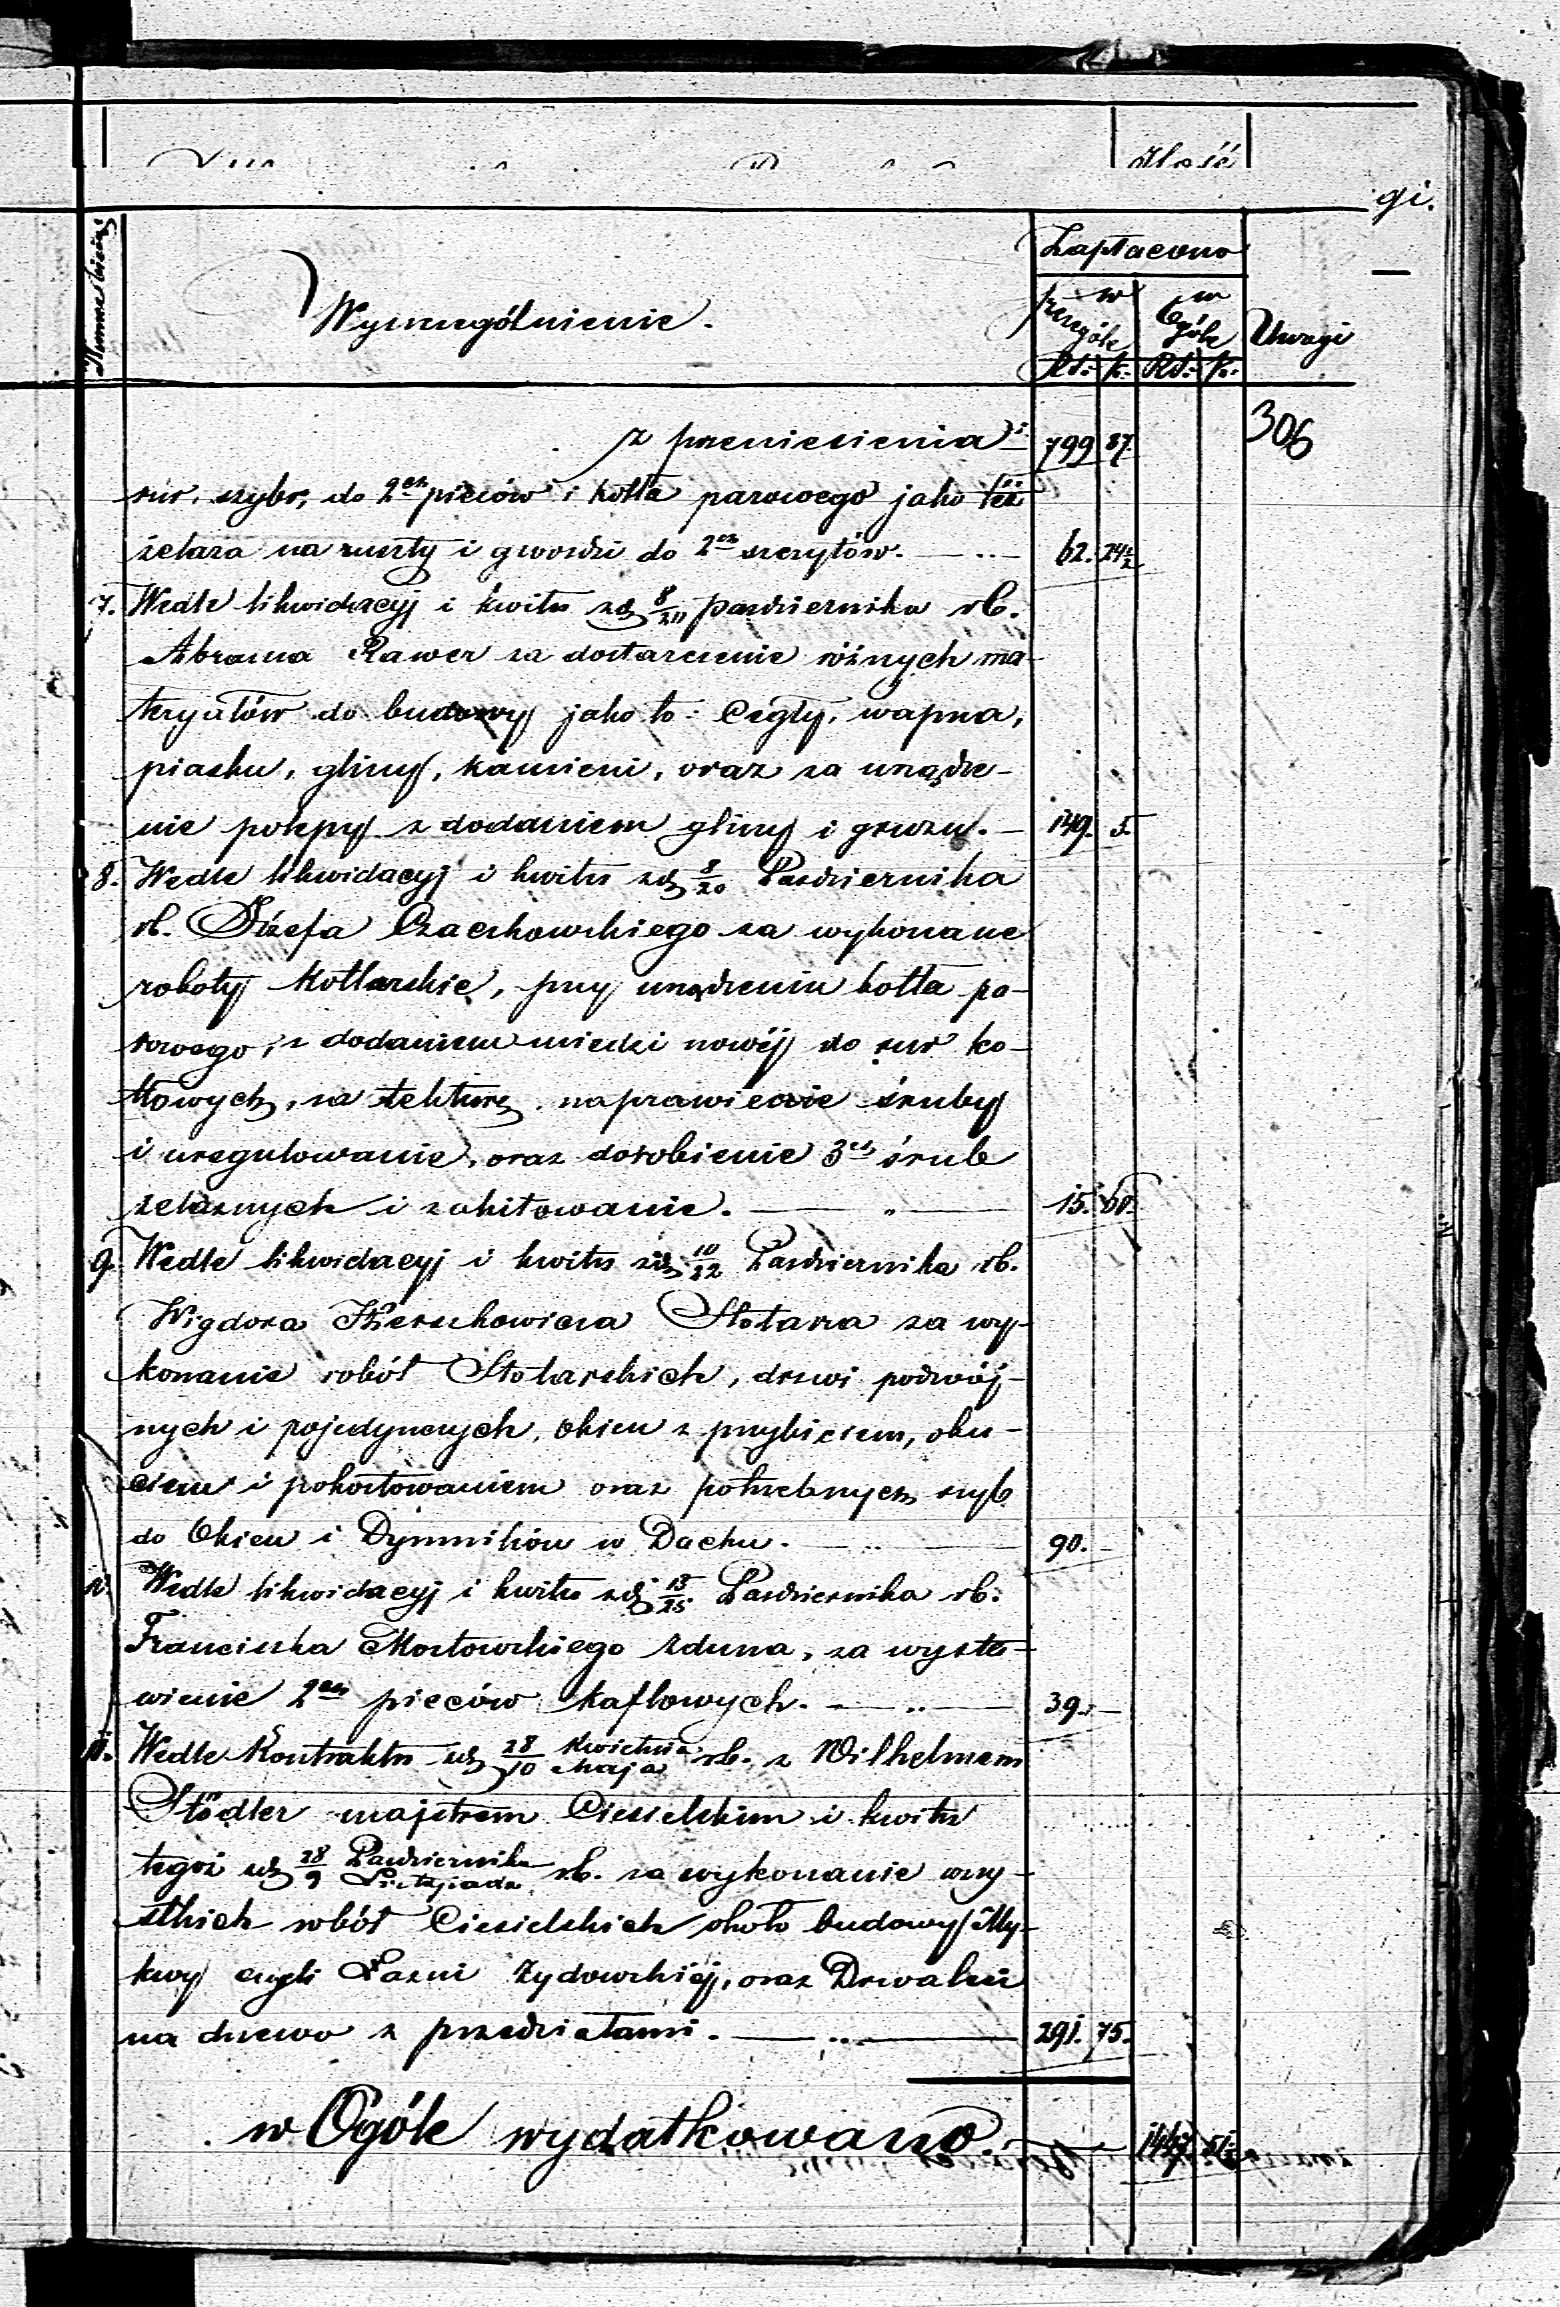 Ilość
gi.
Numer bieżący
Wyszczególnienie.
Zapłacono
w szczególe
w Ogóle
Uwagi
Rs. k. Rs. k.
306
z przeniesienia 799 87.
rur, szybr, do 2ch pieców i kotła parowego jako też
żelaza na ruszty i gwoździ do 2ch szczytów. 62. 24½
7. Wedle likwidacyj i kwitu zd 8/20 października rb.
Abrama Rawer za dostarczenie różnych ma-
teryałów do budowy jako to: Cegły, wapna,
piasku, gliny, kamieni, oraz za urządze-
nie polepy z dodaniem gliny i gruzu. — 149. 5.
8. Wedle likwidacyj i kwitu zd 8/20 Października
rb. Józefa Czachowskiego za wykonane
roboty Kotlarskie, przy urządzeniu kotła pa-
rowego, z dodaniem miedzi nowéj do rur ko-
tłowych, za tekturę, naprawienie śruby
i uregulowanie, oraz dorobienie 3ch śrub
żelaznych i zakitowanie. 15. 60.
9. Wedle likwidacyj i kwitu zd 10/22 Października rb.
Wigdora Herszkowicza Stolarza za wy-
konanie robót Stolarskich, drzwi podwój-
nych i pojedynczych, okien z przybiciem, oku-
ciem i pokostowaniem oraz potrzebnych szyb
do Okien i Dymników w Dachu. 90. —
10. Wedle likwidacyj i kwitu zd 13/25 Października rb.
Franciszka Mostowskiego Zduna, za wysta-
wienie 2ch pieców kaflowych. 39. —
11. Wedle Kontraktu zd 28/10 Kwietnia/Maja rb. z Wilhelmem
Stodler majstrem Ciesielskim i kwitu
tegoż zd 28/9 Października/Listopada rb. za wykonanie wszy-
stkich robót Ciesielskich około budowy My-
kwy czyli Łazni Żydowskiéj, oraz Drwalni
na drzewo z przedziałami. 291. 75.
w Ogóle wydatkowano. 1447 51½